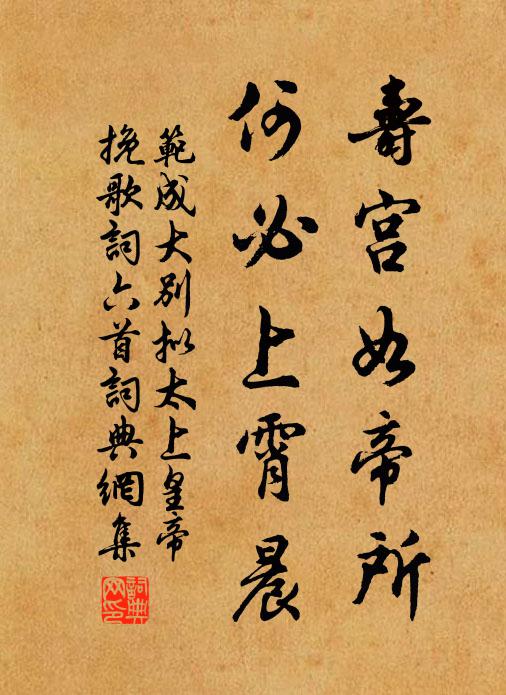 壽宮如帝所
何必上霄晨
範成大別擬太上皇帝
挽歌詞六首詞典網集
詞典
网印